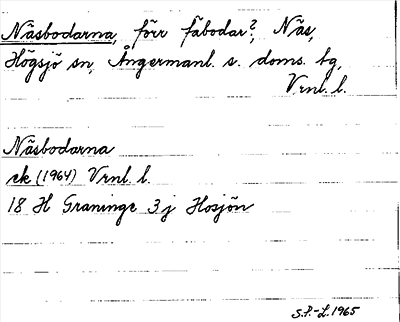 Näsbodarna, förr fäbodar?, Näs,
Högsjö sn, Ångermanl. s. doms. tg,
Vrnl. l.
Näsbodarna
ek (1964) Vrnl. l.
18 H Graninge 3 j Hosjön
S.P.-L. 1965